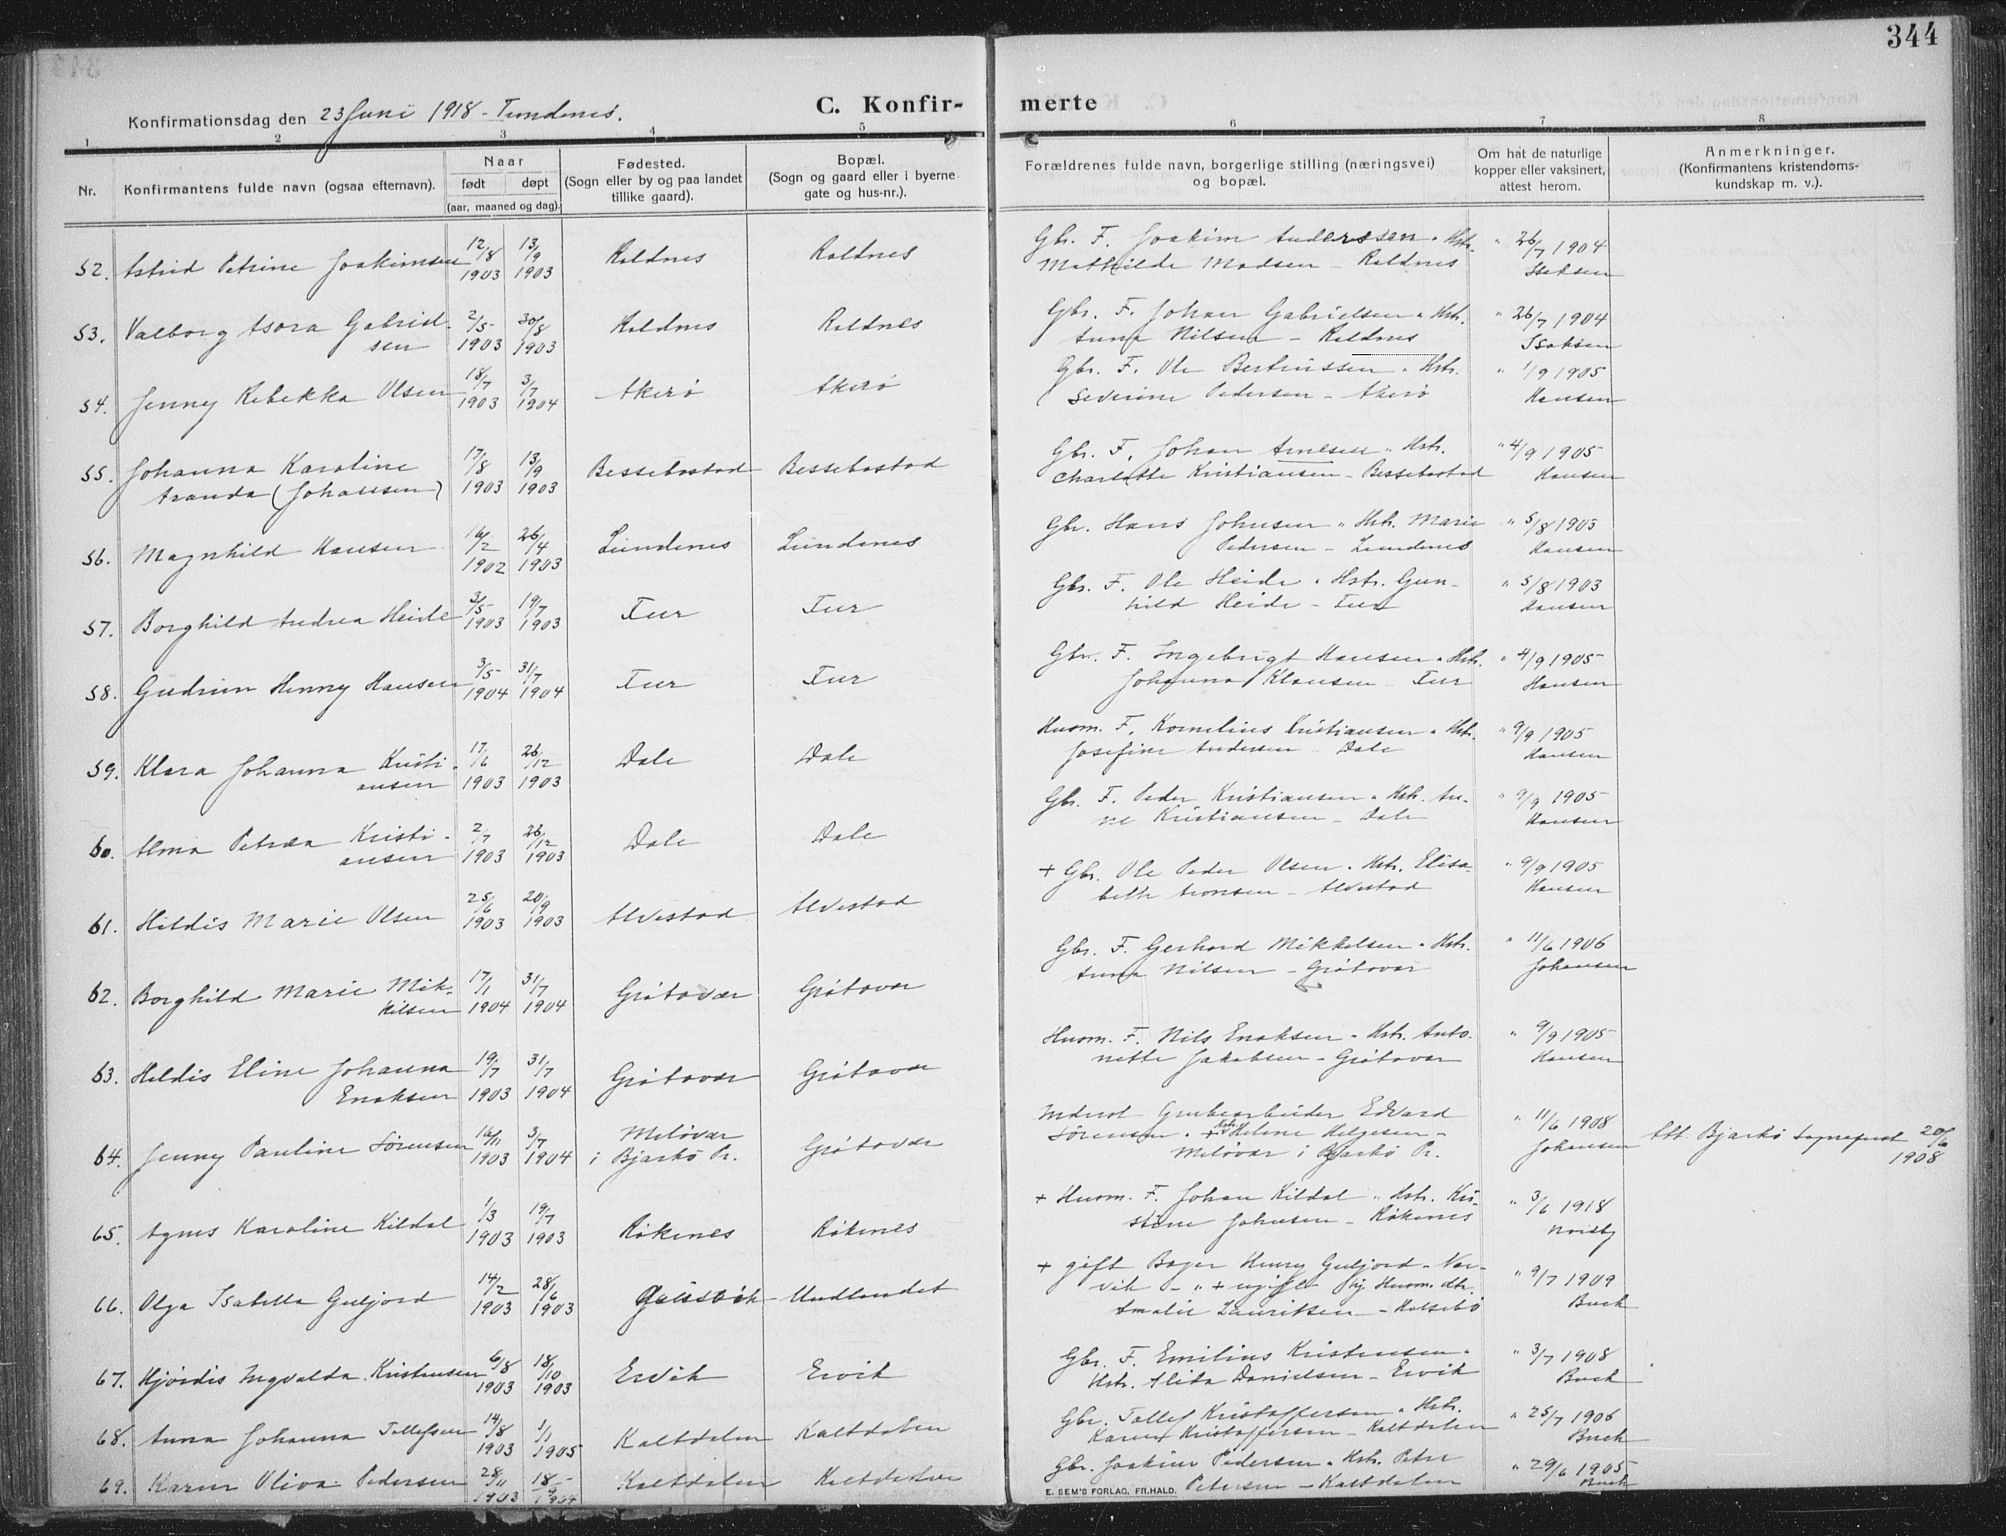 344
Konfirmationsdag den 23 Juni 1918 - Trondenes.
C. Konfir-
merte
1 2 3 4 5 6 7 8
Nr.
Konfirmantens fulde navn (ogsaa efternavn).
Naar
født døpt
(aar, maaned og dag).
Fødested.
(Sogn eller by og paa landet
tillike gaard).
Bopæl.
(Sogn og gaard eller i byerne
gate og hus-nr.).
Forældrenes fulde navn, borgerlige stilling (næringsvei)
og bopæl.
Om hat de naturlige
kopper eller vaksinert,
attest herom.
Anmerkninger.
(Konfirmantens kristendoms-
kundskap m. v.).
52. Astrid Petrine Joakimsen 12/8 1903 13/9 1903 Koldnes Roldnes
Gbr. F. Joakim Anderssen " Hstr.
Mathilde Madsen - Roldnes
" 26/7 1904
Isaksen
53. Valborg Asora Gabriel-
sen 2/5 1903 30/8 1903 Roldnes Roldnes
Gbr. F. Johan Gabrielsen " Hstr.
Anna Nilsen - Roldnes
" 26/7 1904
Isaksen
54. Jenny Rebekka Olsen 18/7 1903 3/7 1904 Akerø Akerø
Gbr. F. Ole Bertinssen " Hstr.
Severine Pedersen - Akerø
" 1/9 1905
Hansen
55. Johanna Karoline
Aranda (Johansen) 17/8 1903 13/9 1903 Bessebostad Bessebostad
Gbr. F. Johan Arnesen " Hstr.
Charlotte Kristiansen - Bessebostad
" 4/9 1905
Hansen
56. Magnhild Hansen 16/2 1902 26/4 1903 Lundenes Lundenes
Gbr. Hans Johnsen " Hstr. Marie
Pedersen - Lundenes
" 5/8 1903
Hansen
57. Borghild Andrea Heide 3/5 1903 19/7 1903 Fur Fur
Gbr. F. Ole Heide " Hstr. Gun-
hild Heide - Fur
" 5/8 1903
Hansen
58. Gudrun Henny Hansen 3/5 1904 31/7 1904 Fur Fur
Gbr. F. Ingebrigt Hansen " Hstr.
Johanna Klausen - Fur
" 4/9 1905
Hansen
59. Klara Johanna Kristi-
ansen 17/6 1903 26/12 1903 Dale Dale
Husm. F. Kornelius Kristiansen " Hstr.
Josefine Andersen - Dale
" 9/9 1905
Hansen
60. Alma Petrea Kristi-
ansen 2/7 1903 26/12 1903 Dale Dale
Gbr. F. Peder Kristiansen " Hstr. An-
ne Kristiansen - Dale
" 9/9 1905
Hansen
61. Hildis Marie Olsen 25/6 1903 20/9 1903 Alvestad Alvestad
+ Gbr. Ole Peder Olsen " Hstr. Elisa-
beth Aronsen - Alvestad
" 9/9 1905
Hansen
62. Borghild Marie Mik-
kelsen 17/1 1904 31/7 1904 Grøtavær Grøtavær
Gbr. F. Gerhard Mikkelsen " Hstr.
Anna Nilsen - Grøtavær
" 11/6 1906
Johansen
63. Hildis Eline Johanna
Enoksen 19/7 1903 31/7 1904 Grøtavær Grøtavær
Husm. F. Nils Enoksen " Hstr. Anto-
nette Jakobsen - Grøtavær
" 9/9 1905
Hansen
64. Jenny Pauline Sørensen 16/11 1903 3/7 1904 Meløvær
i Bjarkø Pr. Grøtavær
Inderst Grubearbeider Edvard
Sørensen " + Hstr. Helene Helgesen -
Meløvær i Bjarkø Pr.
" 11/6 1908
Johansen
Att. Bjarkø Sogneprest 20/6
1908
65. Agnes Karoline Kildal 1/3 1903 19/7 1903 Røkenes Røkenes
+ Husm. F. Johan Kildal " Hstr. Kri-
stine Johnsen - Røkenes
" 3/6 1918
Nordby
66. Olga Isabella Guljord 14/2 1903 28/6 1903 Gausvik Undlandet
+ gift Bager Henry Guljord - Nar-
vik - " + ugift Pij. Husm. dtr.
Amalie Lauritsen - Kalsebø
" 9/7 1909
Buch
67. Hjørdis Ingvalda Kristensen 6/8 1903 18/10 1903 Ervik Ervik
Gbr. F. Emilius Kristensen "
Hstr. Alida Danielsen - Ervik
" 3/7 1908
Buch
68. Anna Johanna Tollefsen 14/8 1903 1/1 1905 Kaltdalen Kaltdalen
Gbr. Tollef Kristoffersen " Hstr.
Karen Kristoffersen - Kaltdalen
" 25/7 1906
Buch
69. Karen Oliva Pedersen 28/11 1903 18/9 1904 Kaltdalen Kaltdalen
Gbr. Joakim Pedersen " Hstr. Petra
Petersen - Kaltdalen
" 29/6 1905
Buch
E. SEM'S FORLAG, FR.HALD.